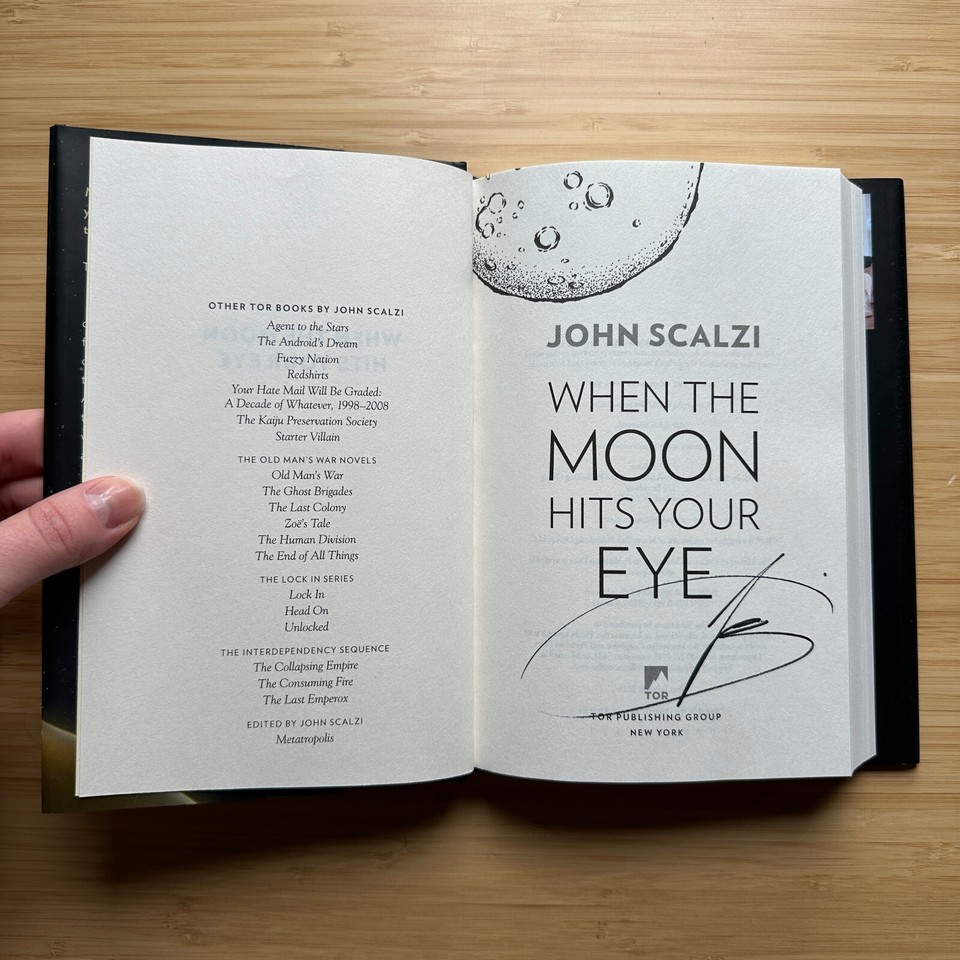 OTHER TOR BOOKS BY JOHN SCALZI
Agent to the Stars
The Android's Dream
Fuzzy Nation
Redshirts
Your Hate Mail Will Be Graded:
A Decade of Whatever, 1998–2008
The Kaiju Preservation Society
Starter Villain
THE OLD MAN'S WAR NOVELS
Old Man's War
The Ghost Brigades
The Last Colony
Zoë's Tale
The Human Division
The End of All Things
THE LOCK IN SERIES
Lock In
Head On
Unlocked
THE INTERDEPENDENCY SEQUENCE
The Collapsing Empire
The Consuming Fire
The Last Emperox
EDITED BY JOHN SCALZI
Metatropolis
JOHN SCALZI
WHEN THE
MOON
HITS YOUR
EYE
TOR
TOR PUBLISHING GROUP
NEW YORK